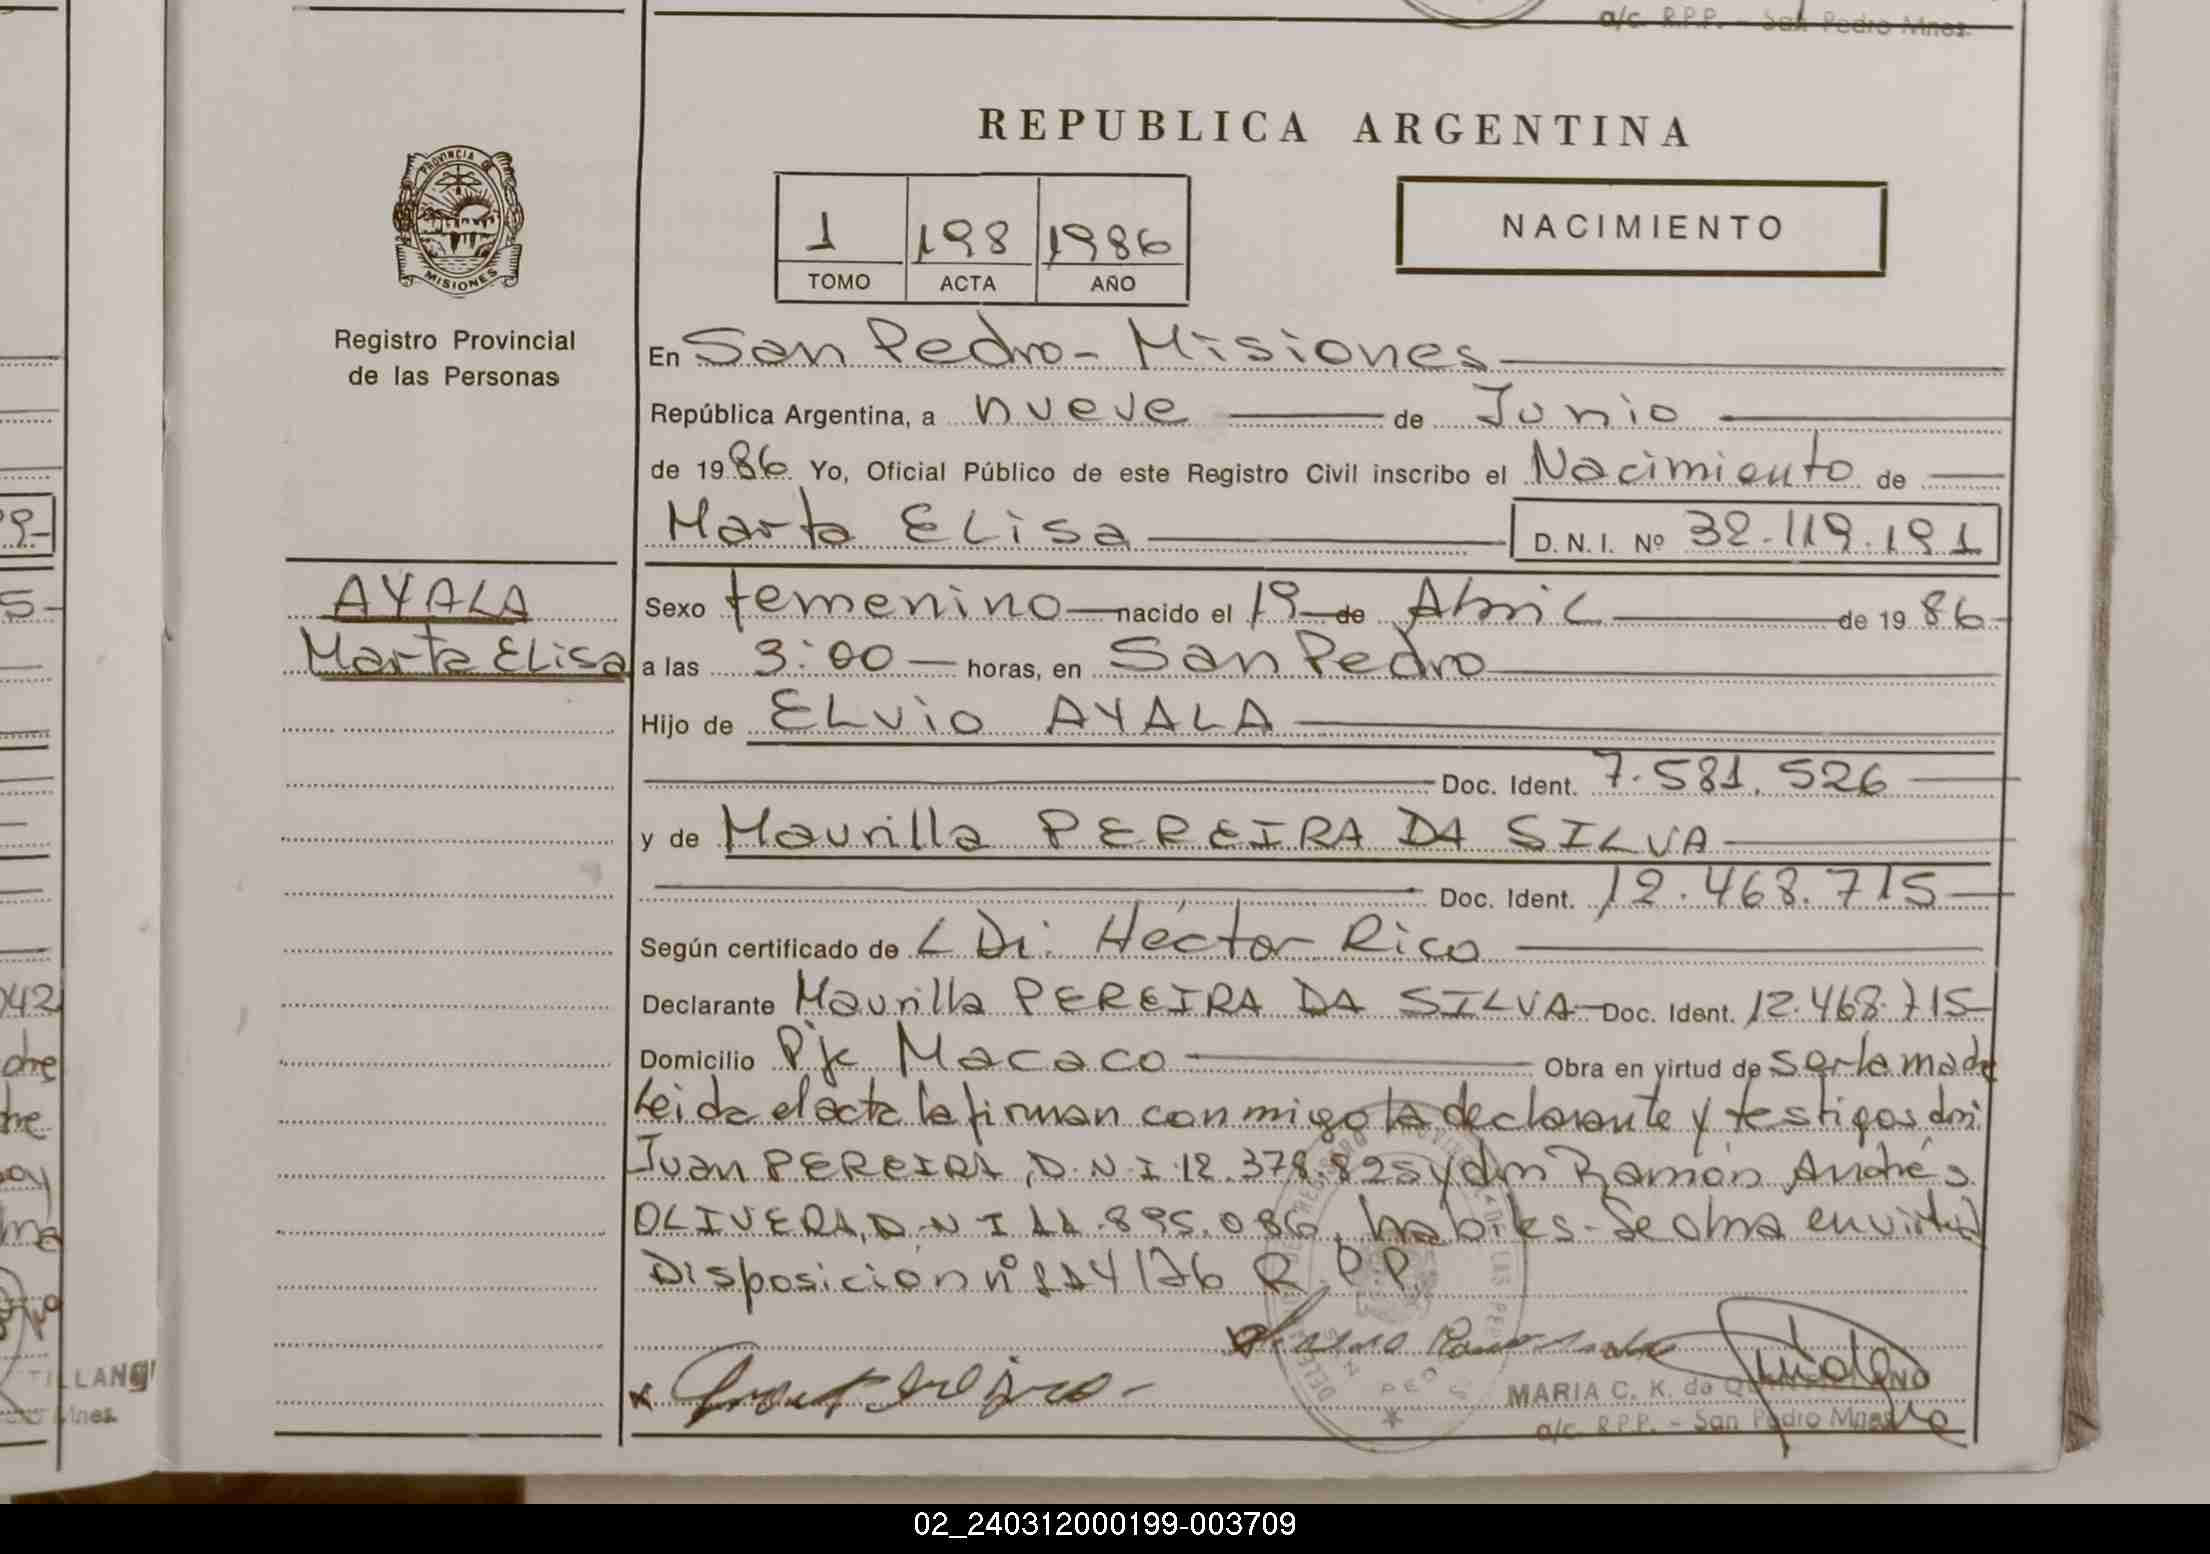 a/c. R.P.P. - San Pedro Mnes.
REPUBLICA ARGENTINA
PROVINCIA DE
MISIONES
1 198 1986
TOMO ACTA AÑO
NACIMIENTO
Registro Provincial
de las Personas
En San Pedro - Misiones
República Argentina, a nueve de Junio
de 1986 Yo, Oficial Público de este Registro Civil inscribo el Nacimiento de
Marta Elisa D. N. I. Nº 32.119.191
AYALA
Marta Elisa
Sexo femenino nacido el 19 de Abril de 1986
a las 3:00 horas, en San Pedro
Hijo de ELvio AYALA
Doc. Ident. 7.581.526
y de Maurilla PEREIRA DA SILVA
Doc. Ident. 12.468.715
Según certificado de L Dr: Héctor Rico
Declarante Maurilla PEREIRA DA SILVA Doc. Ident. 12.468.715
Domicilio Pje Macaco Obra en virtud de ser la madre
Leida el acta la firman conmigo la declarante y testigos don
Juan PEREIRA, D.N.I. 12.378.825 y don Ramón Andrés
OLIVERA, D.N.I 11.895.086, habiles - Se obra en virtud
Disposición nº 114/76 R.P.P.
MARIA C. K. de
a/c. R.P.P. - San Pedro Mnes
02_240312000199-003709